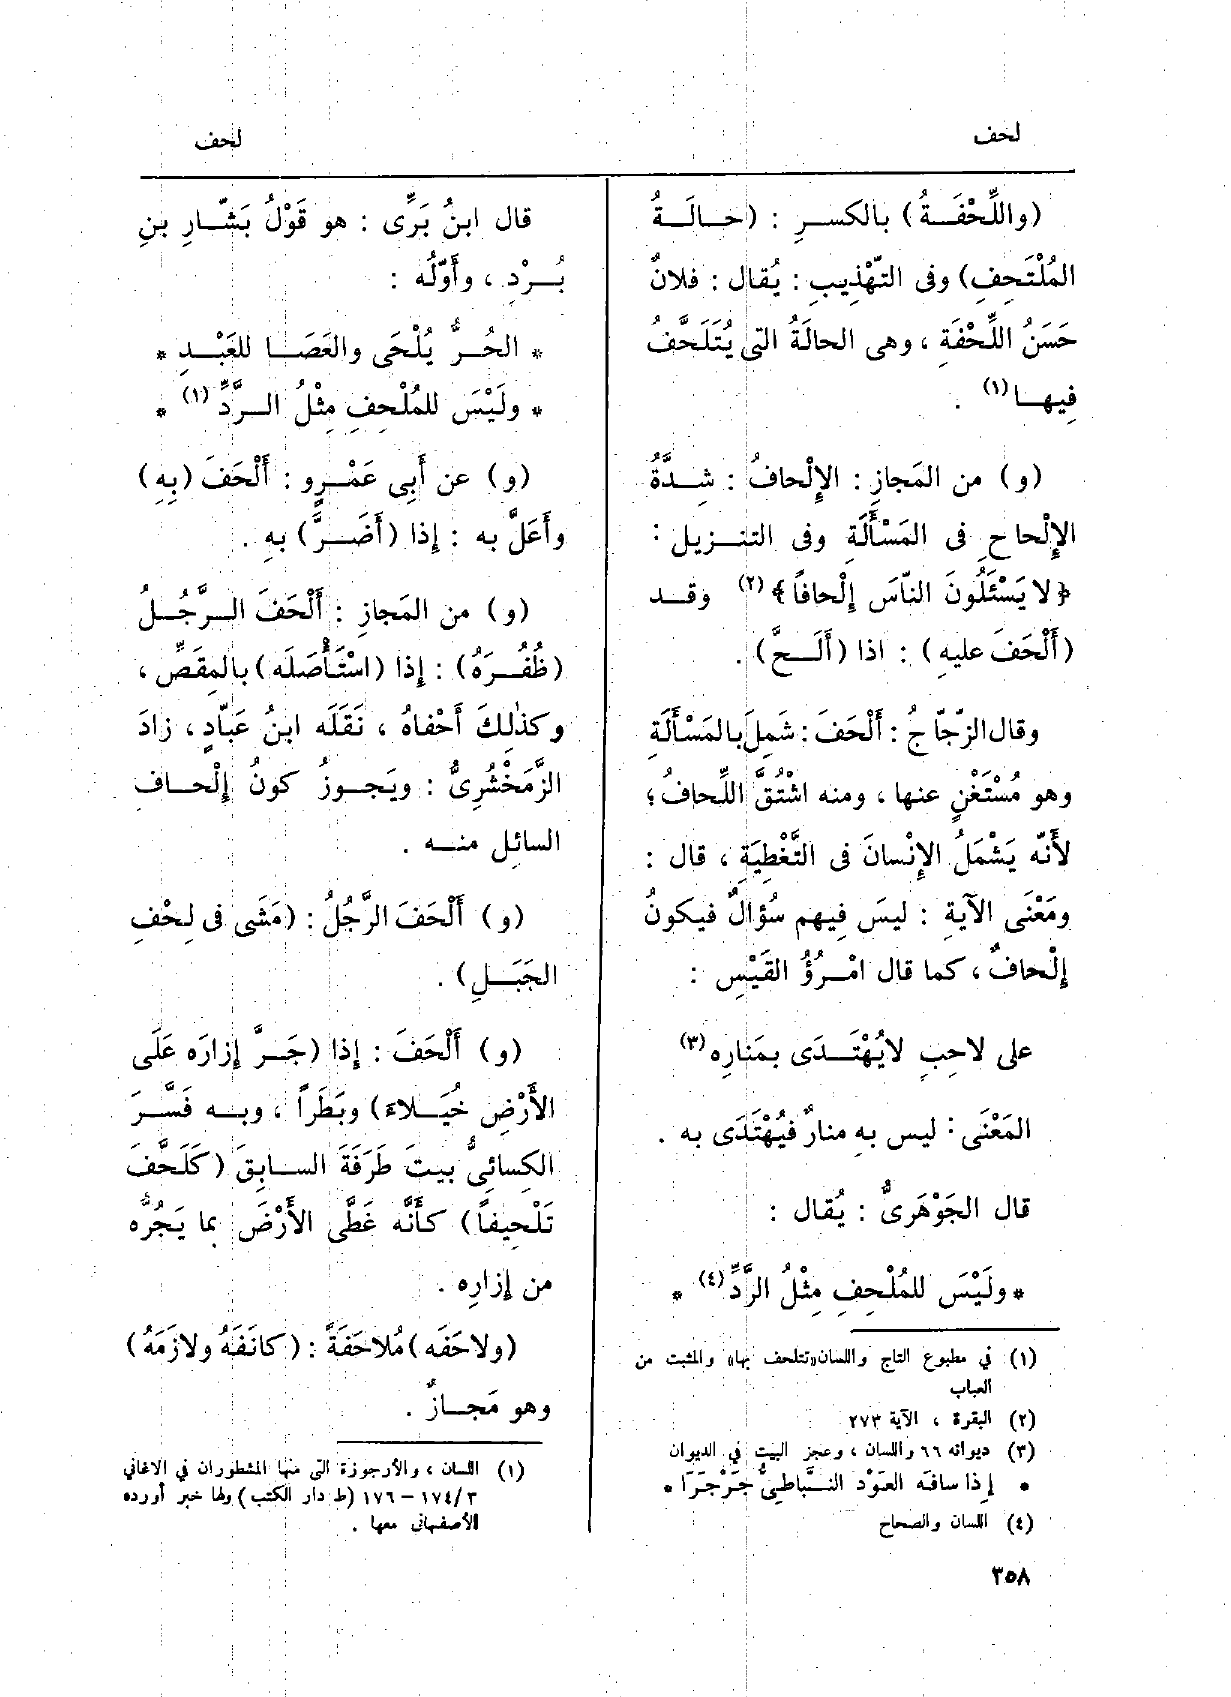 لحف
لحف
(واللِّحْفَـةُ) بالكسرِ : (حـالَـةُ
المُلْتَحِفِ) وفى التَّهْذِيبِ : يُقال : فلانٌ
حَسَنُ اللِّحْفَةِ ، وهى الحالَةُ التى يُتَلَحَّفُ
فِيهـا(١) .
(و) من المَجازِ : الإِلْحافُ : شِـدَّةُ
الإِلْحاحِ فى المَسْأَلَةِ وفى التنـزيل :
﴿لا يَسْئَلُونَ النّاسَ إِلْحافاً﴾(٢) وقـد
(أَلْحَفَ عليهِ) : اذا (أَلَـحَّ) .
وقال الزَّجّاجُ : أَلْحَفَ : شَمِلَ بالمَسْأَلَةِ
وهو مُسْتَغْنٍ عنها ، ومنه اشْتُقَّ اللِّحافُ ؛
لأَنّه يَشْمَلُ الإِنْسانَ فى التَّغْطِيَةِ ، قال :
ومَعْنَى الآيةِ : ليسَ فِيهم سُؤالٌ فيكونُ
إِلْحافٌ ، كما قال امْـرُؤُ القَيْسِ :
على لاحِبٍ لايُهْتَـدَى بمَنارِه(٣)
المَعْنَى : ليس بهِ منارٌ فيُهْتَدَى به .
قال الجَوْهَرِىُّ : يُقال :
* ولَيْسَ للمُلْحِفِ مِثْلُ الرَّدِّ(٤) *
(١) في مطبوع التاج واللسان «تتلحف بها» والمثبت من
العباب
(٢) البقرة ، الآية ٢٧٣
(٣) ديوانه ٦٦ واللسان ، وعجز البيت في الديوان
* إِذا سافَه العَوْد النـبَّاطِيُّ جَرْجَرَا *
(٤) اللسان والصحاح
٣٥٨
قال ابنُ بَرِّى : هو قَوْلُ بَشّارِ بنِ
بُـرْدٍ ، وأَوّلُه :
* الحُـرُّ يُلْحَى والعَصَـا للعَبْـدِ *
* ولَيْسَ للمُلْحِفِ مِثْلُ الـرَّدِّ(١) *
(و) عن أَبِى عَمْـرٍو : أَلْحَفَ (بِهِ)
وأَعَلَّ به : إِذا (أَضَـرَّ) بهِ .
(و) من المَجازِ : أَلْحَفَ الـرَّجُـلُ
(ظُفُـرَهُ) : إِذا (اسْتَأْصَلَه) بالمِقَصِّ ،
وكذٰلِكَ أَحْفاهُ ، نَقَلَه ابنُ عَبّادٍ ، زادَ
الزَّمَخْشَرِىُّ : ويَجـوزُ كونُ إِلْحـاف
السائِل منـه .
(و) أَلْحَفَ الرَّجُلُ : (مَشَى فى لِحْفِ
الجَبَـلِ) .
(و) أَلْحَفَ : إِذا (جَـرَّ إِزارَه عَلَى
الأَرْضِ خُيَـلاءَ) وبَطَراً ، وبـه فَسَّرَ
الكِسائِىُّ بيتَ طَرَفَةَ السـابِقَ (كَلَحَّفَ
تَلْحِيفاً) كأَنَّه غَطَّى الأَرْضَ بما يَجُرُّه
من إِزارِه .
(ولاحَفَه) مُلاحَفَةً : (كانَفَهُ ولازَمَهُ)
وهو مَجـازٌ .
(١) اللسان ، والأرجوزة التى منها المشطوران في الاغاني
٣/١٧٤ – ١٧٦ (ط دار الكتب) ولها خبر أورده
الأصفهانى معها .